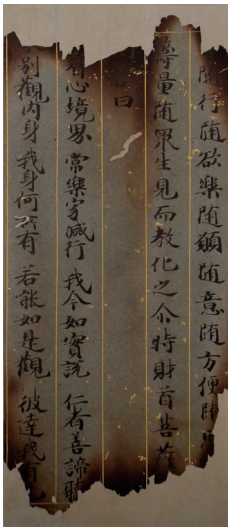 随行随欲樂随願随意随方便随
籌量随眾生見而教化之尒時財首菩薩
曰
心境界 常樂寂滅行 我今如實説 仁者善諦聽
別觀內身 我身何所有 若能如是觀 彼達我有